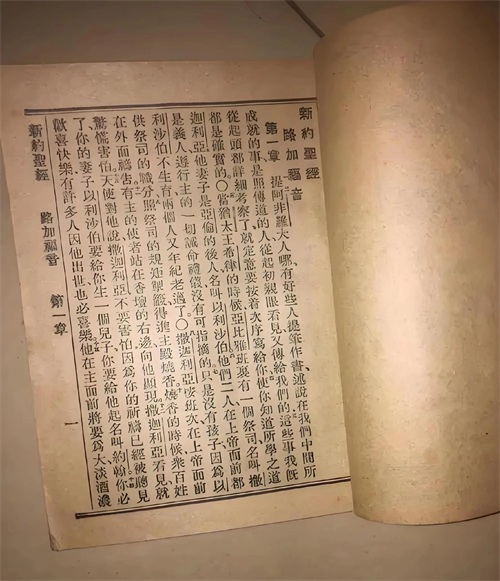 新約聖經
路加福音
第一章 提阿非羅大人哪、有好些人提筆作書、述說在我們中間所
成就的事、是照傳道的人從起初親眼看見又傳給我們的、這些事我旣
從起頭都詳細考察了、就定意要按着次序寫給你、使你知道所學之道
都是確實的○當猶太王希律的時候、亞比雅班裏有一個祭司、名叫撒
迦利亞、他妻子是亞倫的後人、名叫以利沙伯、他們二人在上帝面前都
是義人、遵行主的一切誡命禮儀、沒有可指摘的、只是沒有孩子、因爲以
利沙伯不生育、兩個人又年紀老邁了○撒迦利亞按班次在上帝面前
供祭司的職分、照祭司的規矩掣籤、得進主殿燒香、燒香的時候、衆百姓
在外面禱告、有主的使者站在香壇的右邊、向他顯現、撒迦利亞看見、就
驚慌害怕、天使對他說、撒迦利亞不要害怕、因爲你的祈禱已經被聽見
了、你的妻子以利沙伯要給你生一個兒子、你要給他起名叫約翰、你必
歡喜快樂、有許多人因他出世、也必喜樂、他在主面前將要爲大、淡酒濃
新約聖經 路加福音 第一章 一